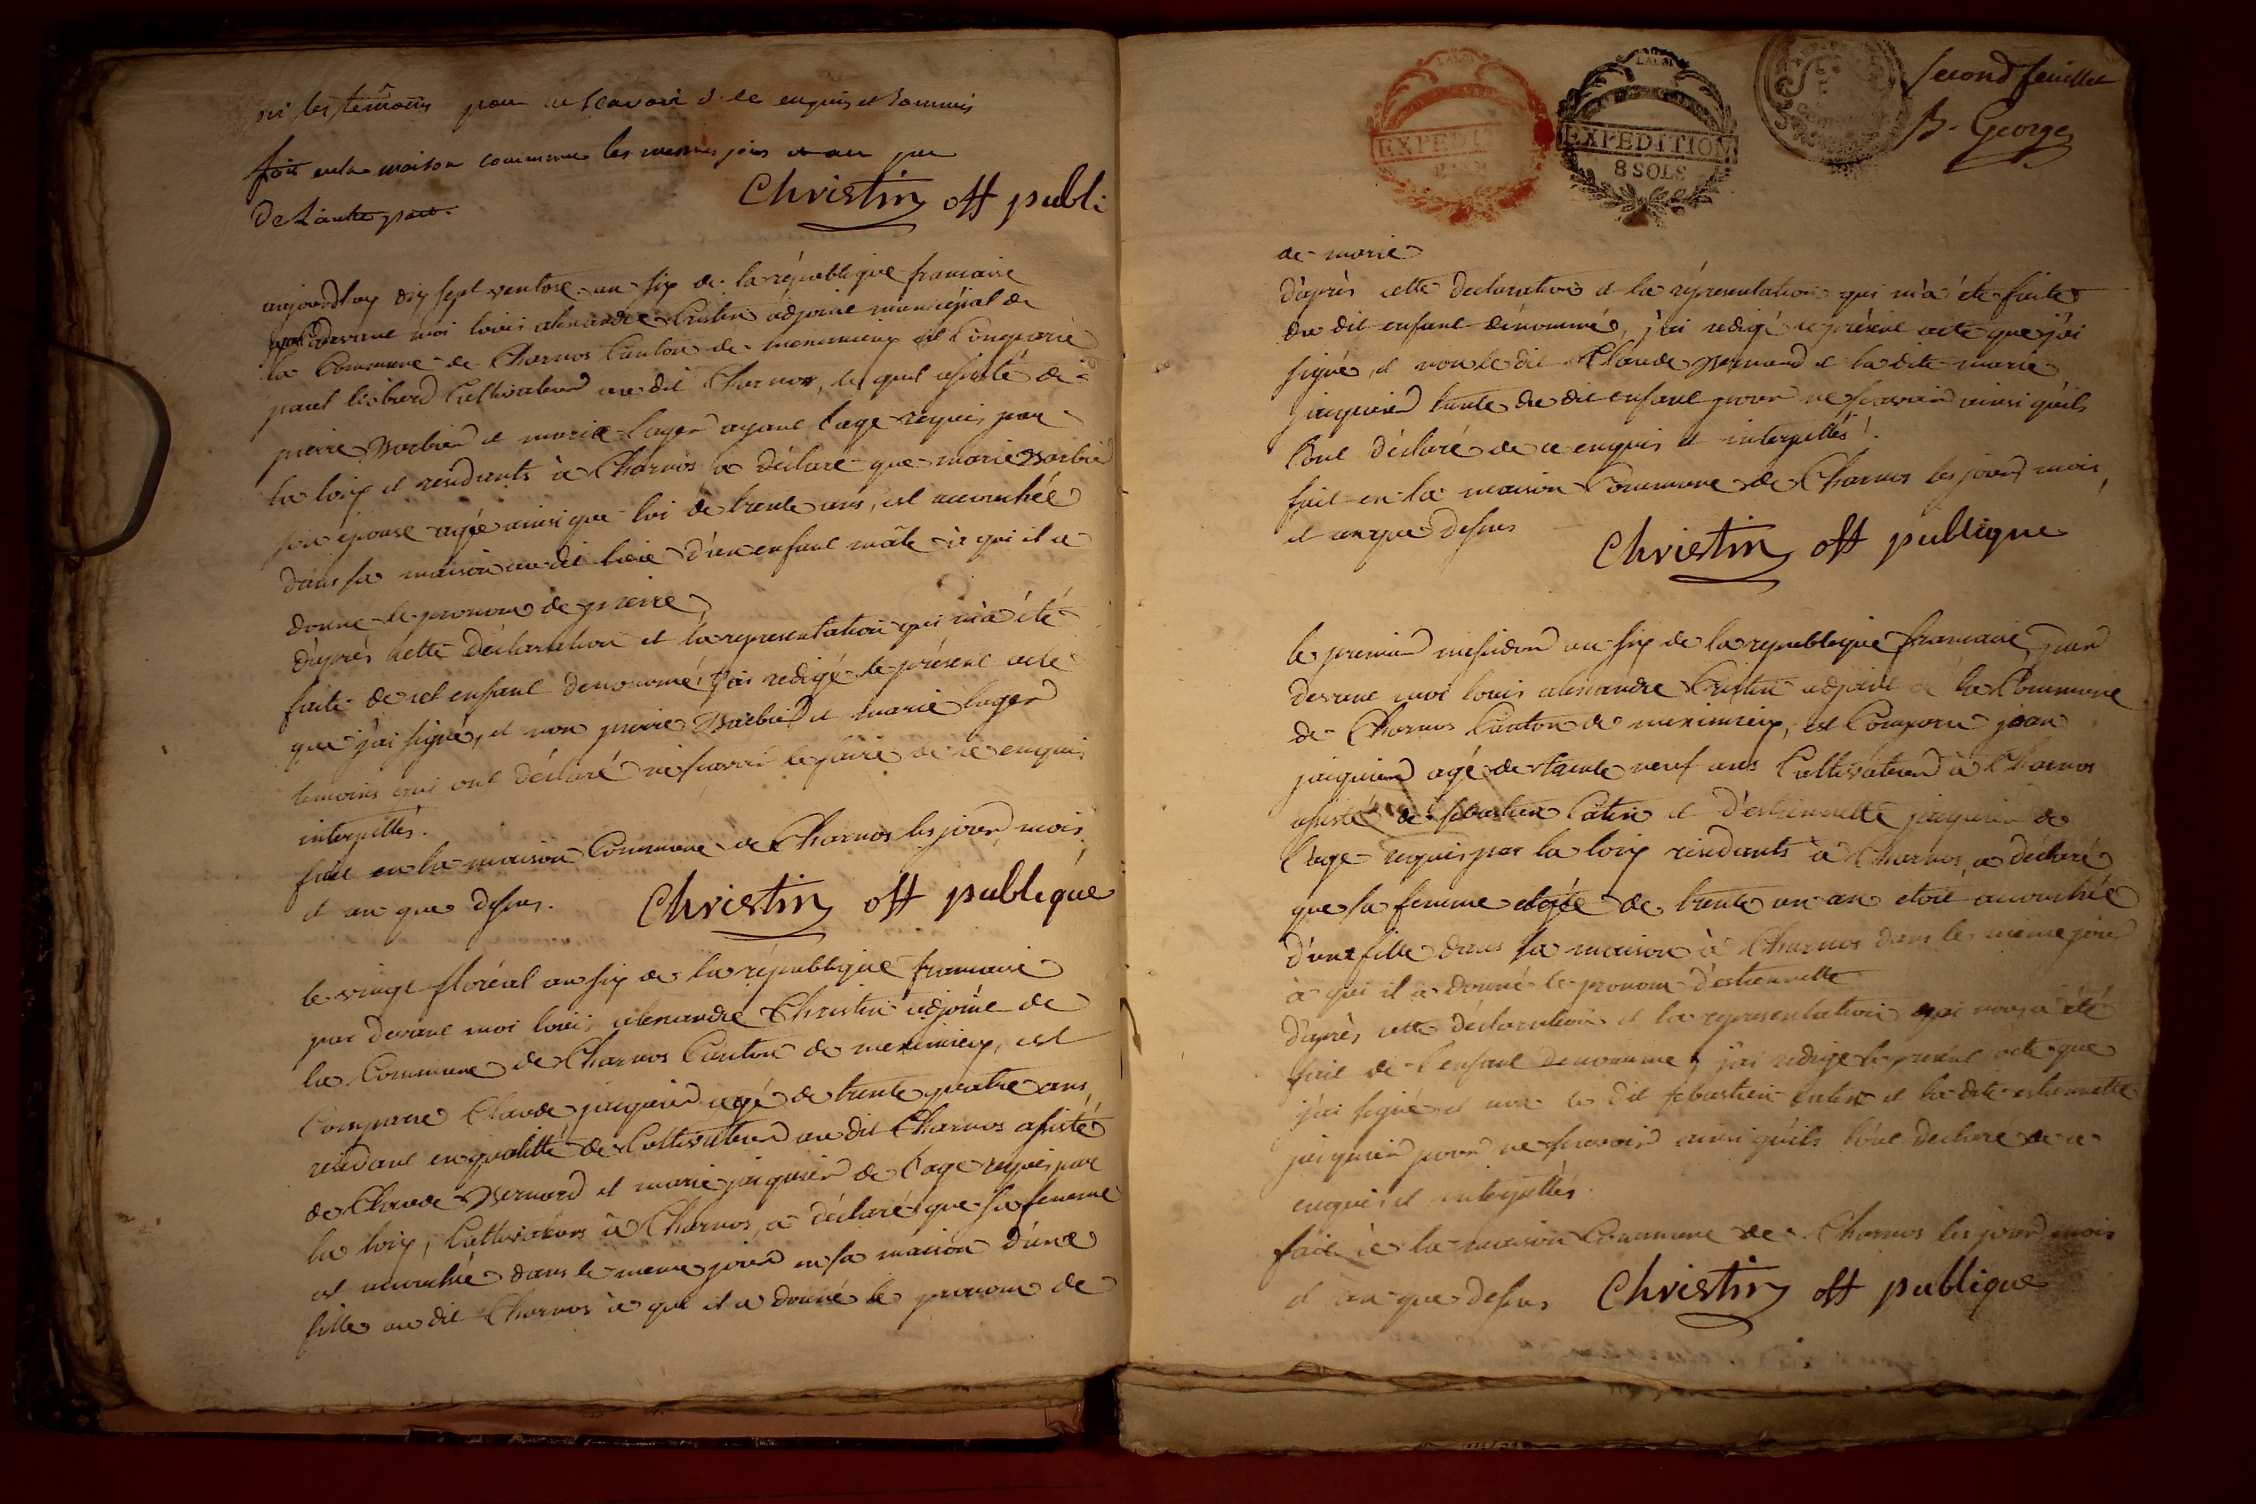 ni les temoins pour ne scavoir de ce enquis et sommés
fait en la maison commune les mêmes jour et an que
de L'autre part.
Christin off publi
aujourdhuy dix sept ventose an six de la république francaise
par devant moi louis alexandre Cristin adjoint municipal de
la Commune de Charnos Canton de meximieux est Comparu
paul Cultivateur au dit Charnos, le quel assisté de
pierre Barbier et marie Loger ayant l'age requis par
la loix et residents à Charnos a déclaré que marie Barbier
son épouse agée ainsi que lui de trente ans, est accouchée
dans sa maison au dit lieu d'un enfant mâle à qui il a
donné le pronom de pierre
d'après cette déclaration et la representation qui m'a été
faite de cet enfant denommé, j'ai redigé le présent acte
que j'ai signé, et non pierre Barbier et marie loger
temoins qui ont déclaré ne scavoir le faire de ce enquis
interpellés.
fait en la maison Commune de Charnos les jour, mois,
et an que dessus.
Christin off publique
le vingt floréal an six de la république francaise
par devant moi louis alexandre Christin adjoint de
la Commune de Charnos Canton de meximieux, est
Comparu Claude jaiquier agé de trente quatre ans,
residant en qualitté de Cultivateur au dit Charnos assisté
de Claude Bernard et marie jaiquier de l'age requis par
la loix, Cultivateurs à Charnos, a déclaré que sa femme
est accouchée dans le meme jour en sa maison d'une
fille au dit Charnos à qui il a donné le pronom de
LA LOI
EXPEDIT
LA LOI
EXPEDITION
8 SOLS
second feuillet
B. Georges
de marie
d'après cette declaration et la répresentation qui m'a été faite
du dit enfant dénommé, j'ai redigé le présent acte que j'ai
signé, et non le dit Claude Bernard et la dite marie
jaiquier tante du dit enfant pour ne scavoir ainsi qu'ils
l'ont déclaré de ce enquis et interpellés.
fait en la maison Commune de Charnos les jour, mois,
et an que dessus
Christin off publique
le premier messidor an six de la republique francaise, par
devant moi louis alexandre Cristin adjoint de la Commune
de Charnos Canton de meximieux, est Comparu jean
jaiquier agé de trente neuf ans Cultivateur à Charnos
assisté de sebastien Catin et d'estiennette jaiquier de
l'age requis par la loix residants à Charnos, a declaré
que sa femme agée de trente un an etoit accouchée
d'une fille dans sa maison à Charnos dans le même jour
à qui il a donné le pronom d'estiennette
d'après cette déclaration et la representation qui nous a été
fait de l'enfant denommé, j'ai redigé le présent acte que
j'ai signé et non le dit sebastien Catin et la dite estiennette
jaiquier pour ne scavoir ainsi qu'ils l'ont declaré de ce
enquis et interpellés.
fait à la maison Commune de Charnos les jour, mois
et an que dessus
Christin off publique